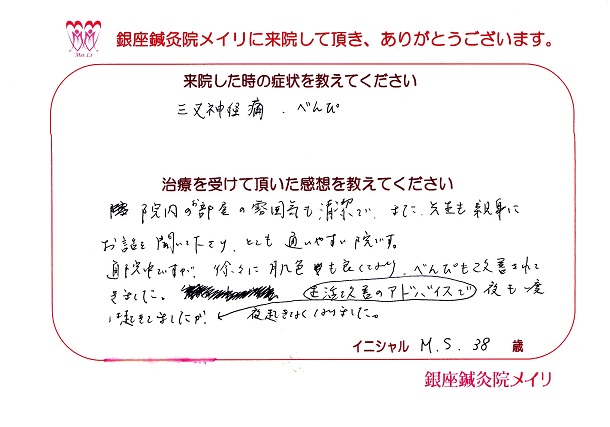 Mei Li
銀座鍼灸院メイリに来院して頂き、ありがとうございます。
来院した時の症状を教えてください
三叉神経痛 . べんぴ
治療を受けて頂いた感想を教えてください
院内のお部屋の雰囲気も清潔で、また、先生も親身に
お話を聞いて下さり、とても通いやすい院です。
通院中ですが、徐々に肌色も良くなり、べんぴも改善されて
きました。 生活改善のアドバイスで 夜も一度
は起きてましたが、 夜起きなくなりました。
イニシャル M.S. 38 歳
銀座鍼灸院メイリ